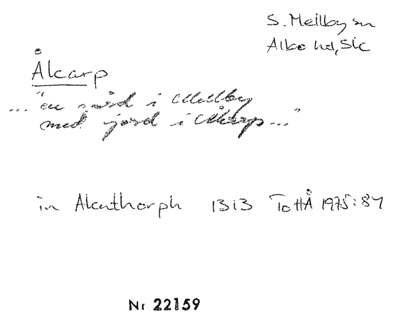 S. Mellby sn
Albo hd, Sk
Å
Ålcarp
..."en gård i Mellby
med jord i Ålctorp..."
in Alcathorph 1313 ToHÅ 1975:84
Nr 22159